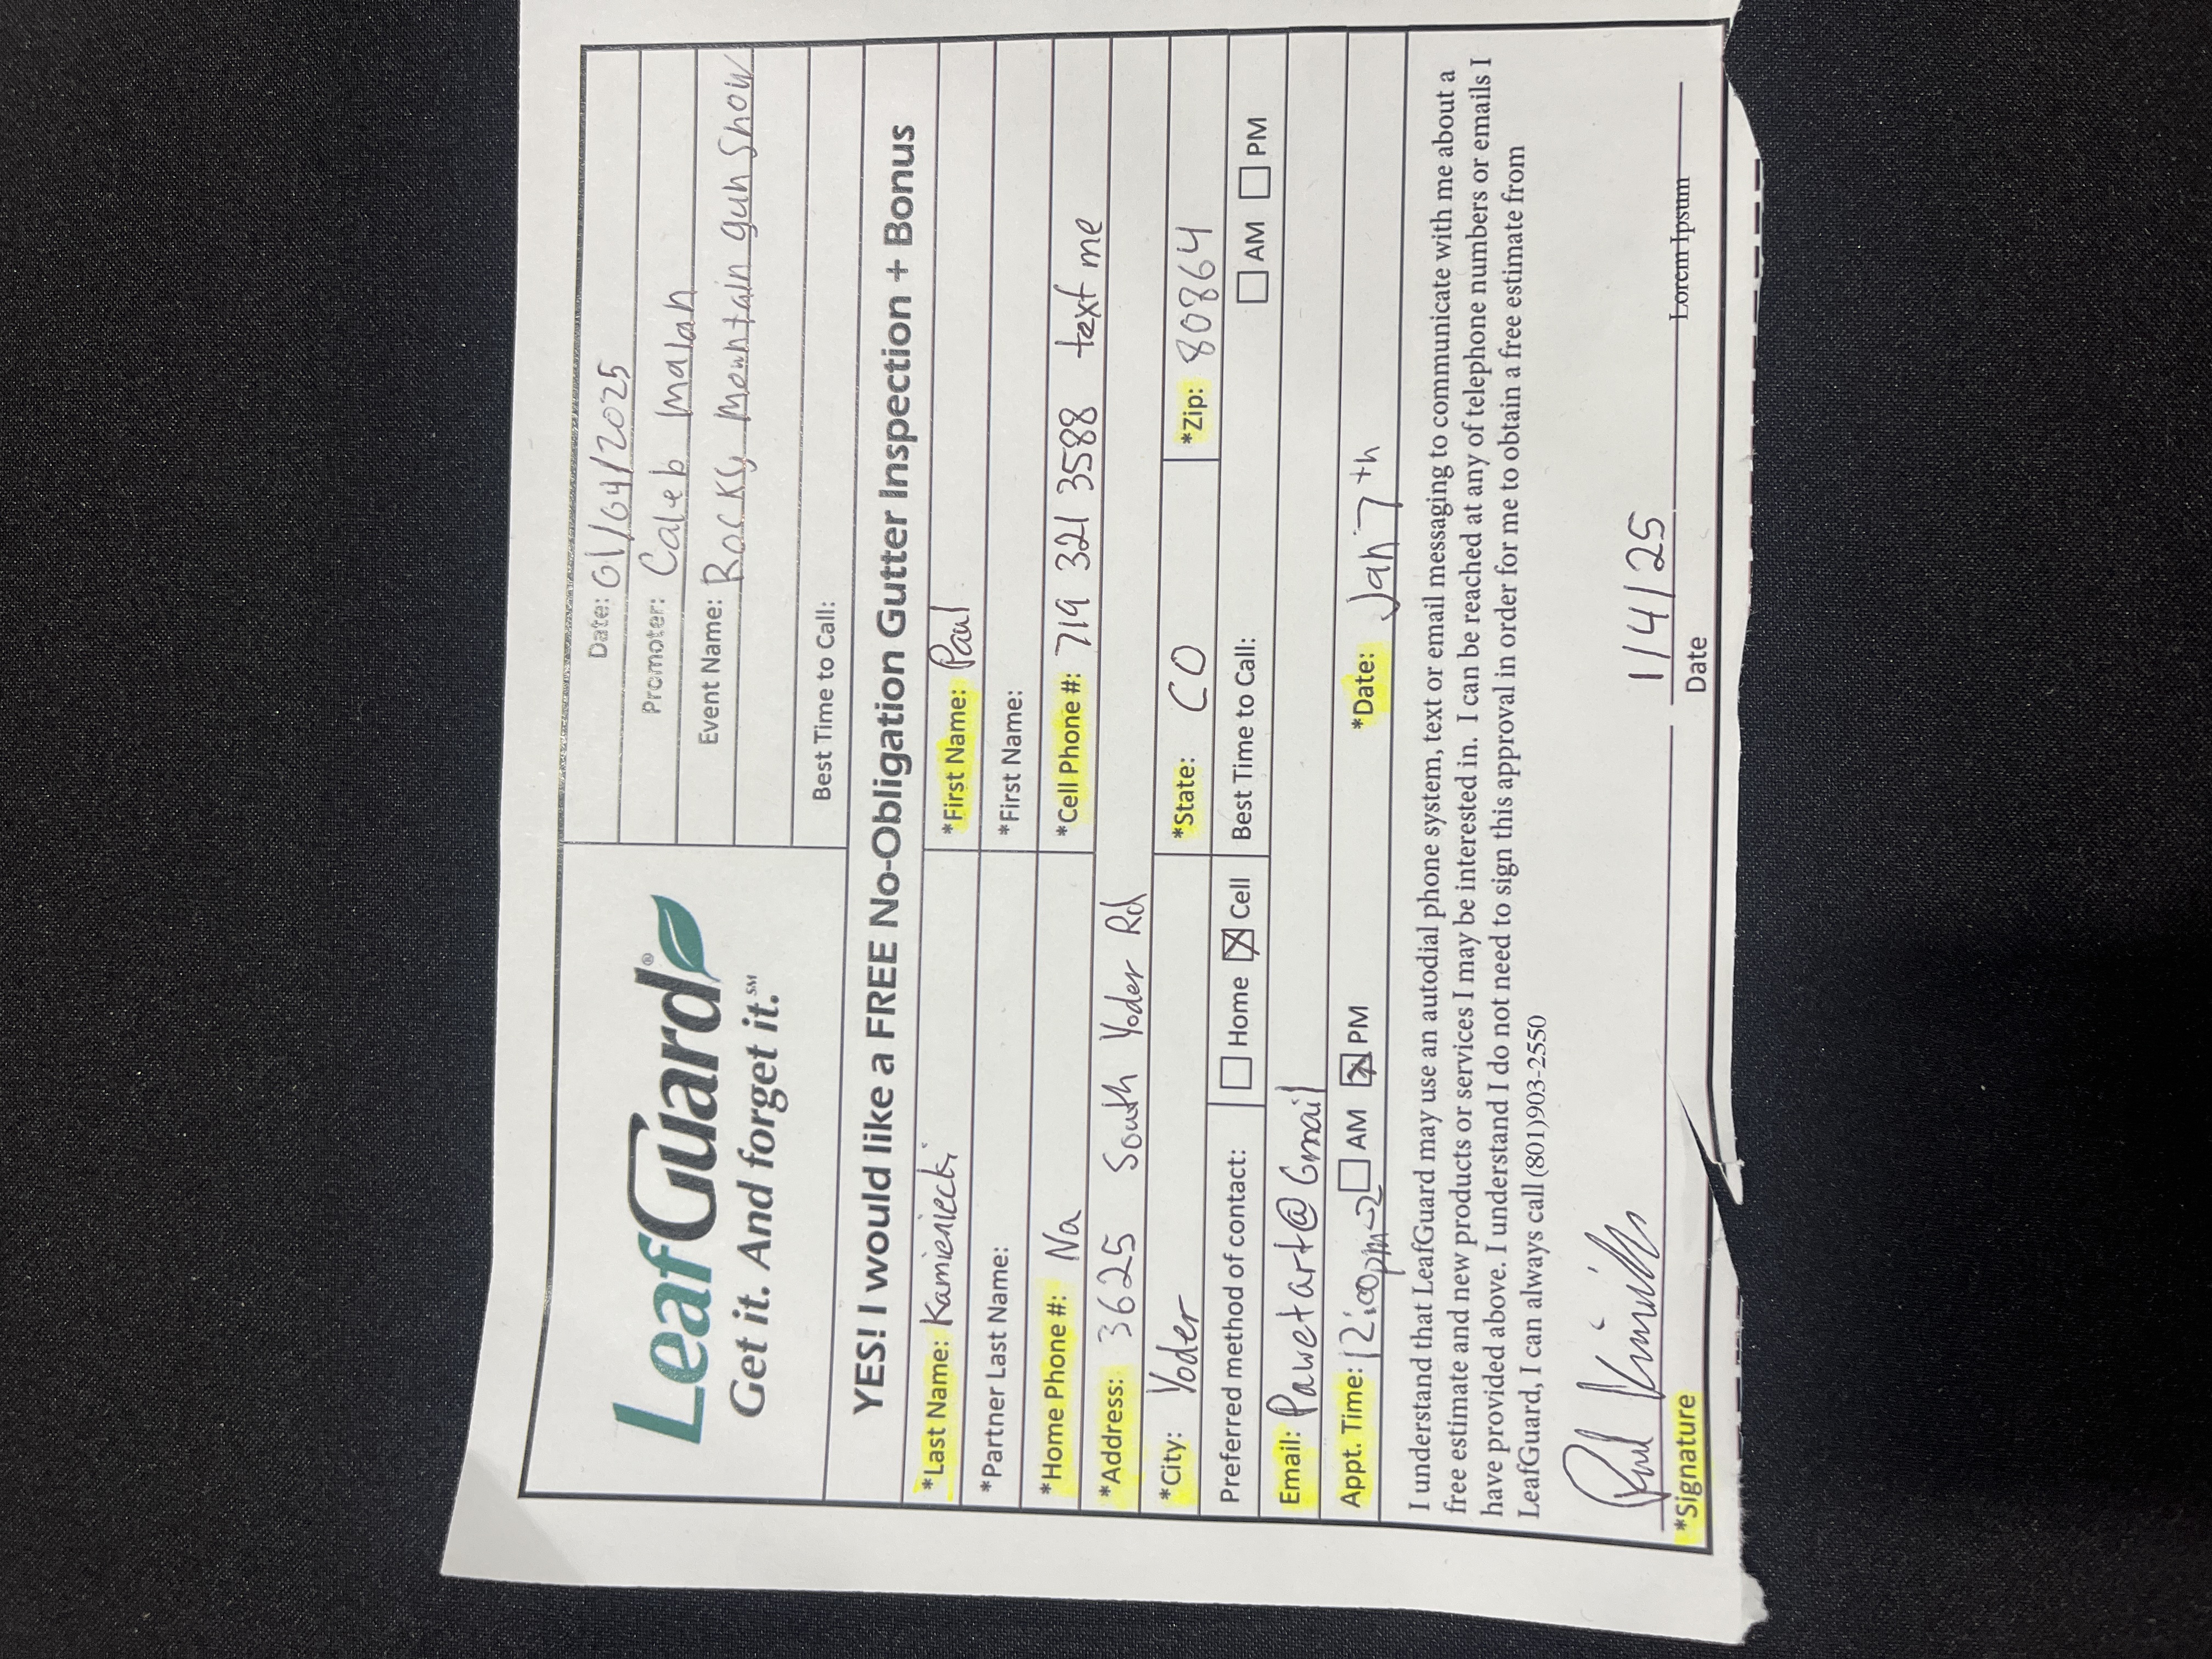 LeafGuard®
Get it. And forget it.℠
Date: 01/04/2025
Promoter: Caleb Malan
Event Name: Rocky Mountain gun Show
Best Time to Call:
YES! I would like a FREE No-Obligation Gutter Inspection + Bonus
*Last Name: Kamieniecki *First Name: Paul
*Partner Last Name: *First Name:
*Home Phone #: Na *Cell Phone #: 719 321 3588 text me
*Address: 3625 South Yoder Rd
*City: Yoder *State: CO *Zip: 80864
Preferred method of contact: ☐ Home ☒ Cell Best Time to Call: ☐ AM ☐ PM
Email: Pawetart@Gmail
Appt. Time: 12:00pm-2 ☐ AM ☒ PM *Date: Jan 7th
I understand that LeafGuard may use an autodial phone system, text or email messaging to communicate with me about a
free estimate and new products or services I may be interested in. I can be reached at any of telephone numbers or emails I
have provided above. I understand I do not need to sign this approval in order for me to obtain a free estimate from
LeafGuard, I can always call (801)903-2550
Paul 1/4/25
*Signature Date Lorem Ipsum